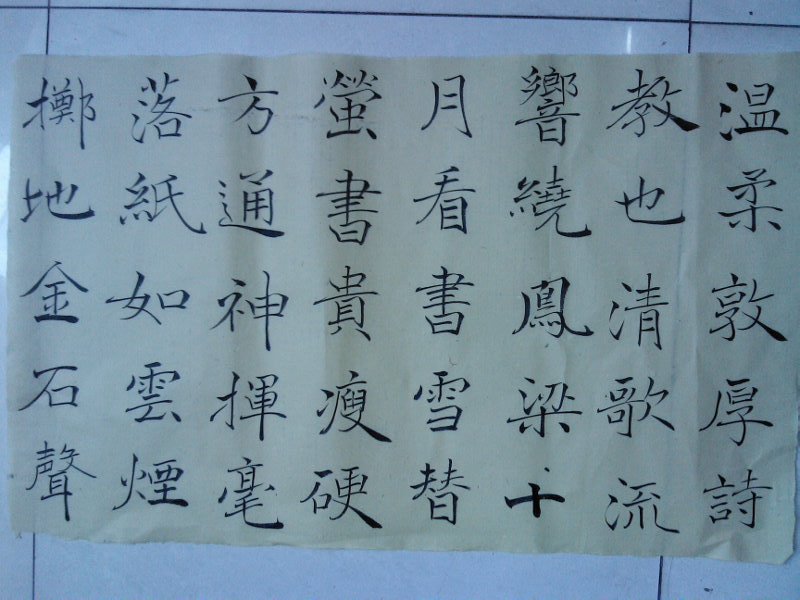 温柔敦厚詩
教也清歌流
響繞鳳梁十
月看書雪替
螢書貴瘦硬
方通神揮毫
落紙如雲煙
擲地金石聲